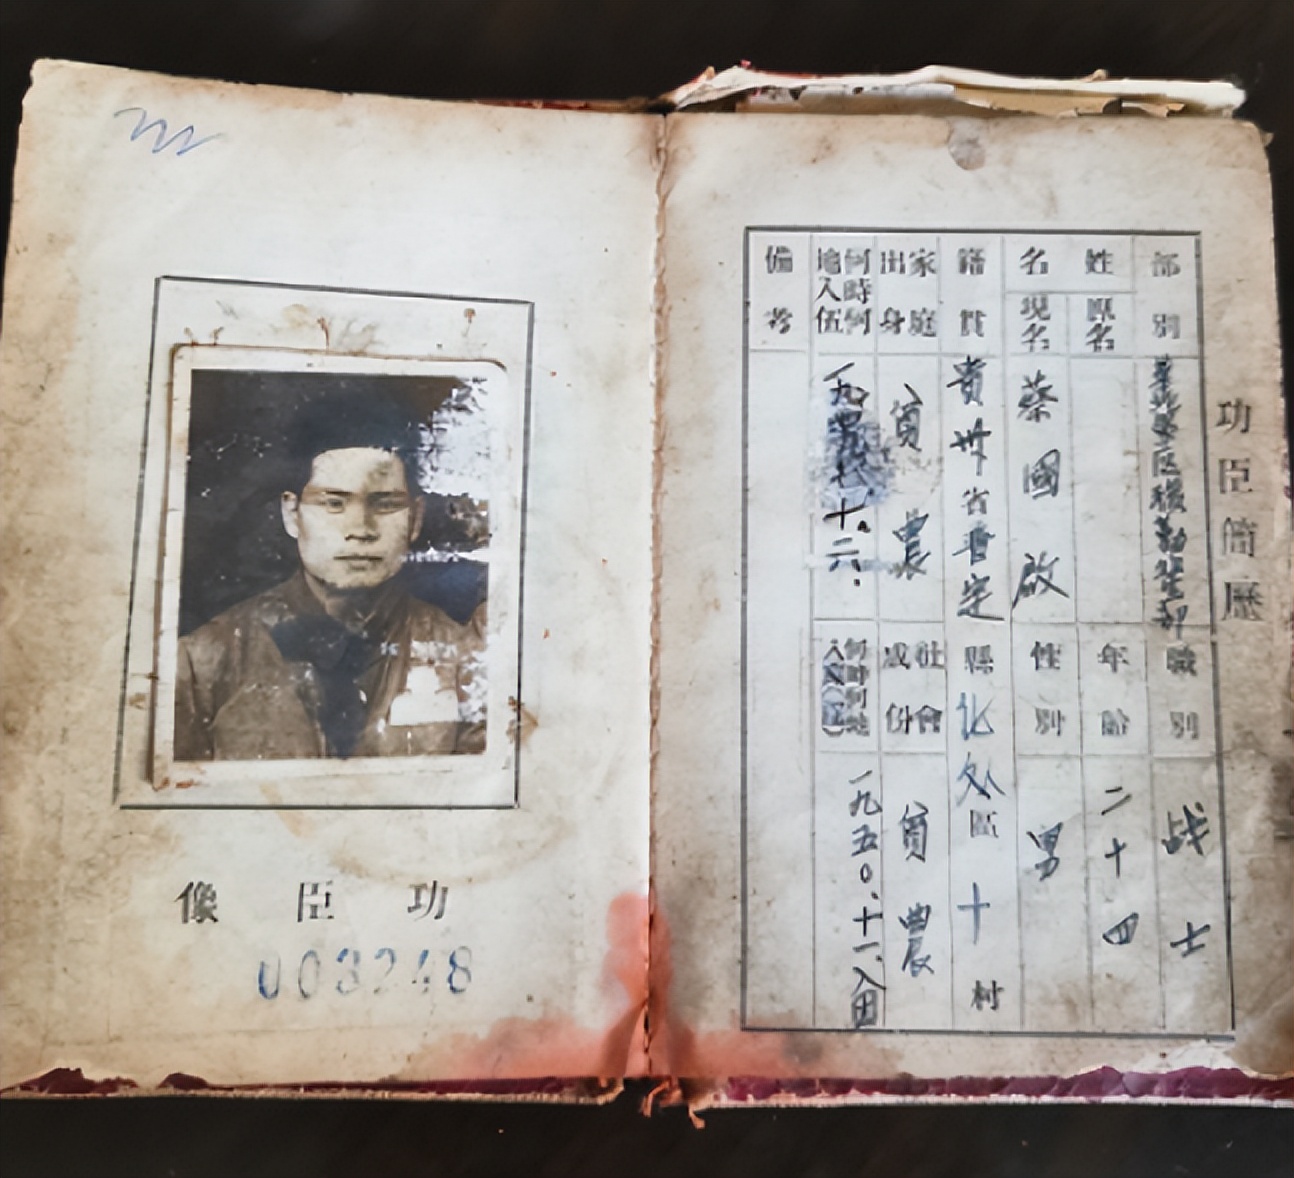 功臣簡歷
部別
職別 战士
姓名
原名
年齡 二十四
現名 蔡國啟
性別 男
籍貫 貴州省普定縣化処區十村
家庭出身 貧農
社會成份 貧農
何時何地入伍 一九四七.十.二六.
何時何地入 一九五〇.十一.入团
備考
功臣像
003248